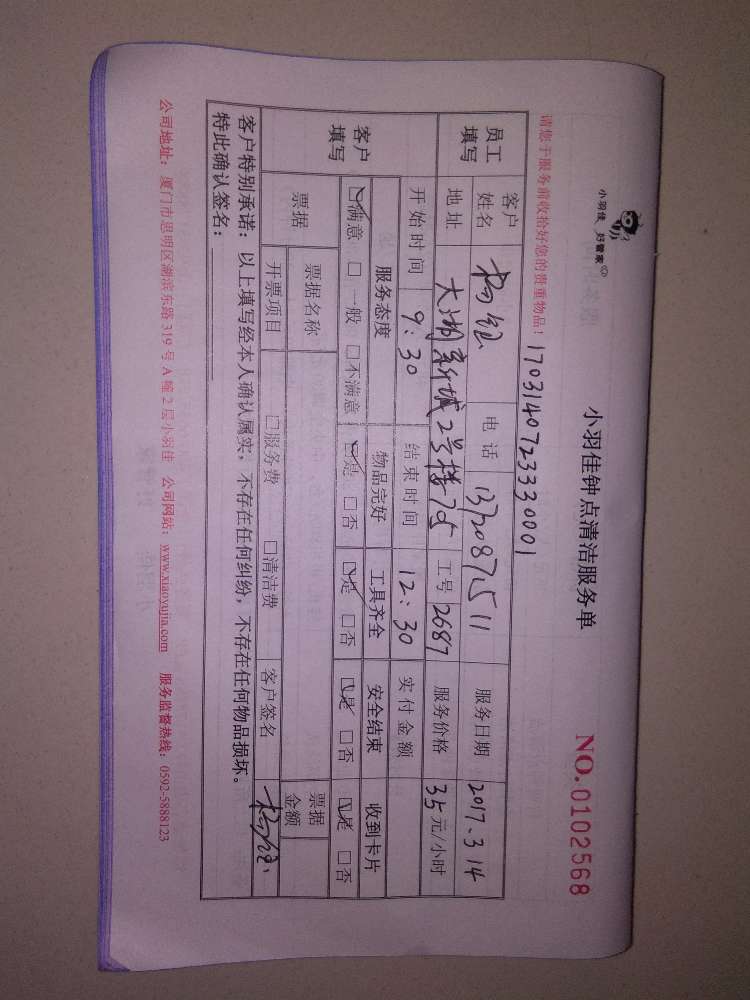 小羽佳 好管家
小羽佳钟点清洁服务单
NO.0102568
请您于服务前收拾好您的贵重物品！
17031407233330001
员工填写 客户姓名 电话 服务日期 2017.3.14
地址 2号楼705 工号 2687 服务价格 35元/小时
开始时间 9:30 结束时间 12:30 实付金额
客户填写 服务态度 物品完好 工具齐全 安全结束 收到卡片
☑满意 □一般 □不满意 ☑是 □否 ☑是 □否 ☑是 □否 ☑是 □否
票据 票据名称 票据金额
开票项目 □服务费 □清洁费 客户签名
客户特别承诺：以上填写经本人确认属实，不存在任何纠纷，不存在任何物品损坏。
特此确认签名：
公司地址：厦门市思明区湖滨东路319号A幢2层小羽佳 公司网站：www.xiaoyujia.com 服务监督热线：0592-5888123